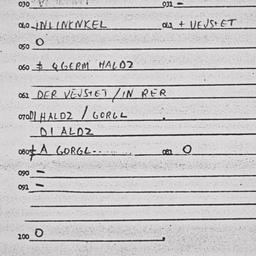 030 031 -
040 INLINKNKEL 041 + VEJSTET
050 O
060 ‡ QGERM HALDZ
061 DER VEJSTET / IN RER
070 DJ HALDZ / GORGL
DI ALDZ
080 ‡ A GORGL.. 081 O
090 -
091 -
100 O